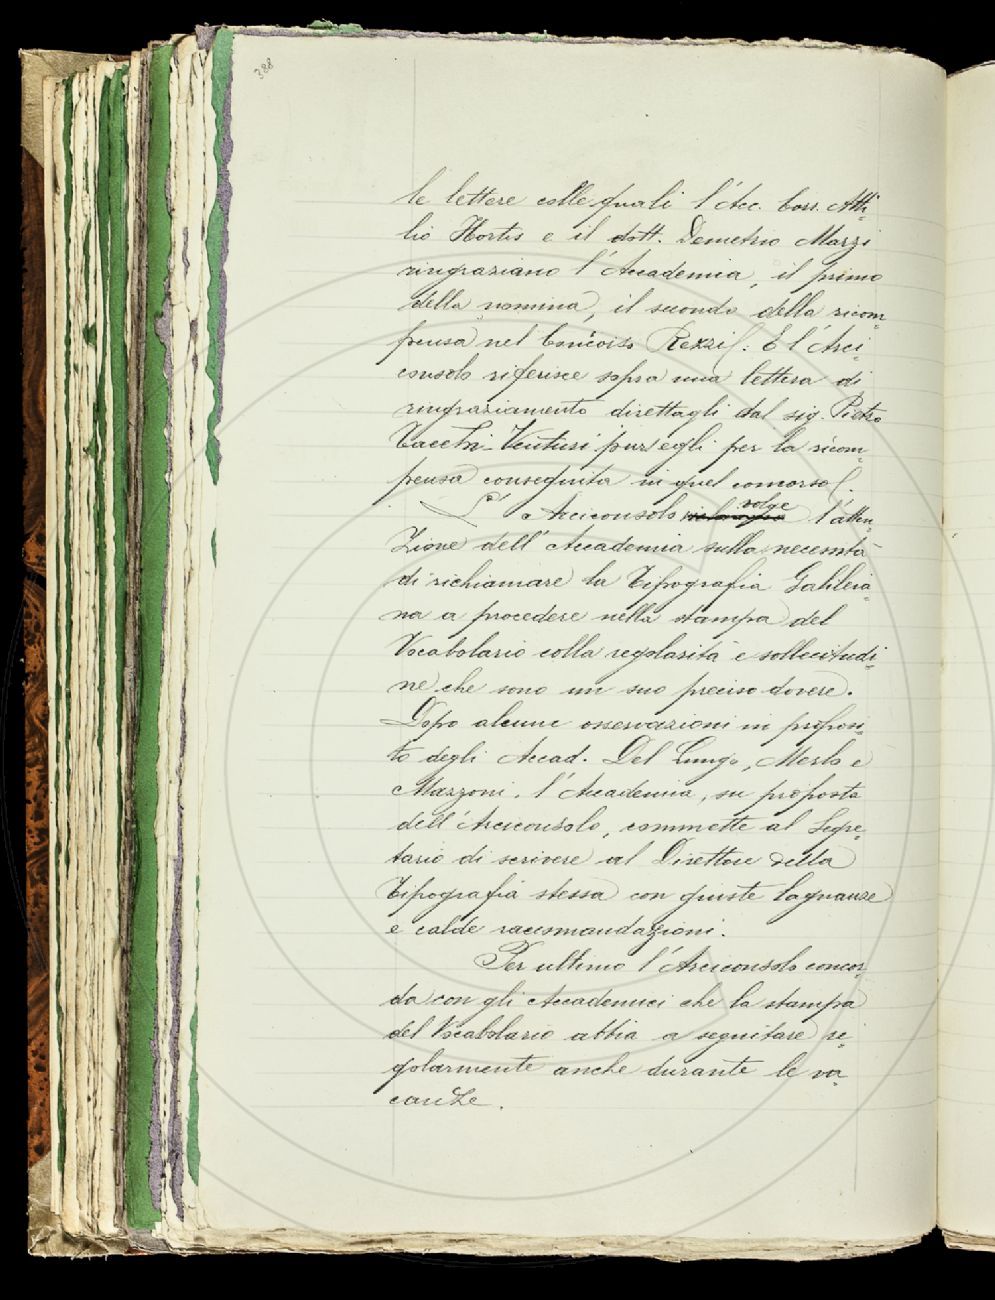 388
le lettere colle quali l'Acc. Corr. Atti=
lio Hortis e il dott. Demetrio Marzi
ringraziano l'Accademia, il primo
della nomina, il secondo della ricom=
pensa nel Concorso Rezzi. E l'Arci=
consolo riferisce sopra una lettera di
ringraziamento direttagli dal sig. Pietro
Tacchi-Venturi pur egli per la ricom=
pensa conseguita in quel concorso.
L'Arciconsolo volge l'atten=
zione dell'Accademia sulla necessità
di richiamare la Tipografia Galileia=
na a procedere nella stampa del
Vocabolario colla regolarità e sollecitudi=
ne che sono un suo preciso dovere.
Dopo alcune osservazioni in proposi=
to degli Accad. Del Lungo, Merlo e
Mazzoni, l'Accademia, su proposta
dell'Arciconsolo, commette al Segre=
tario di scrivere al Direttore della
Tipografia stessa con giuste lagnanze
e calde raccomandazioni.
Per ultimo l'Arciconsolo concor=
da con gli Accademici che la stampa
del Vocabolario abbia a seguitare re=
golarmente anche durante le va=
canze.